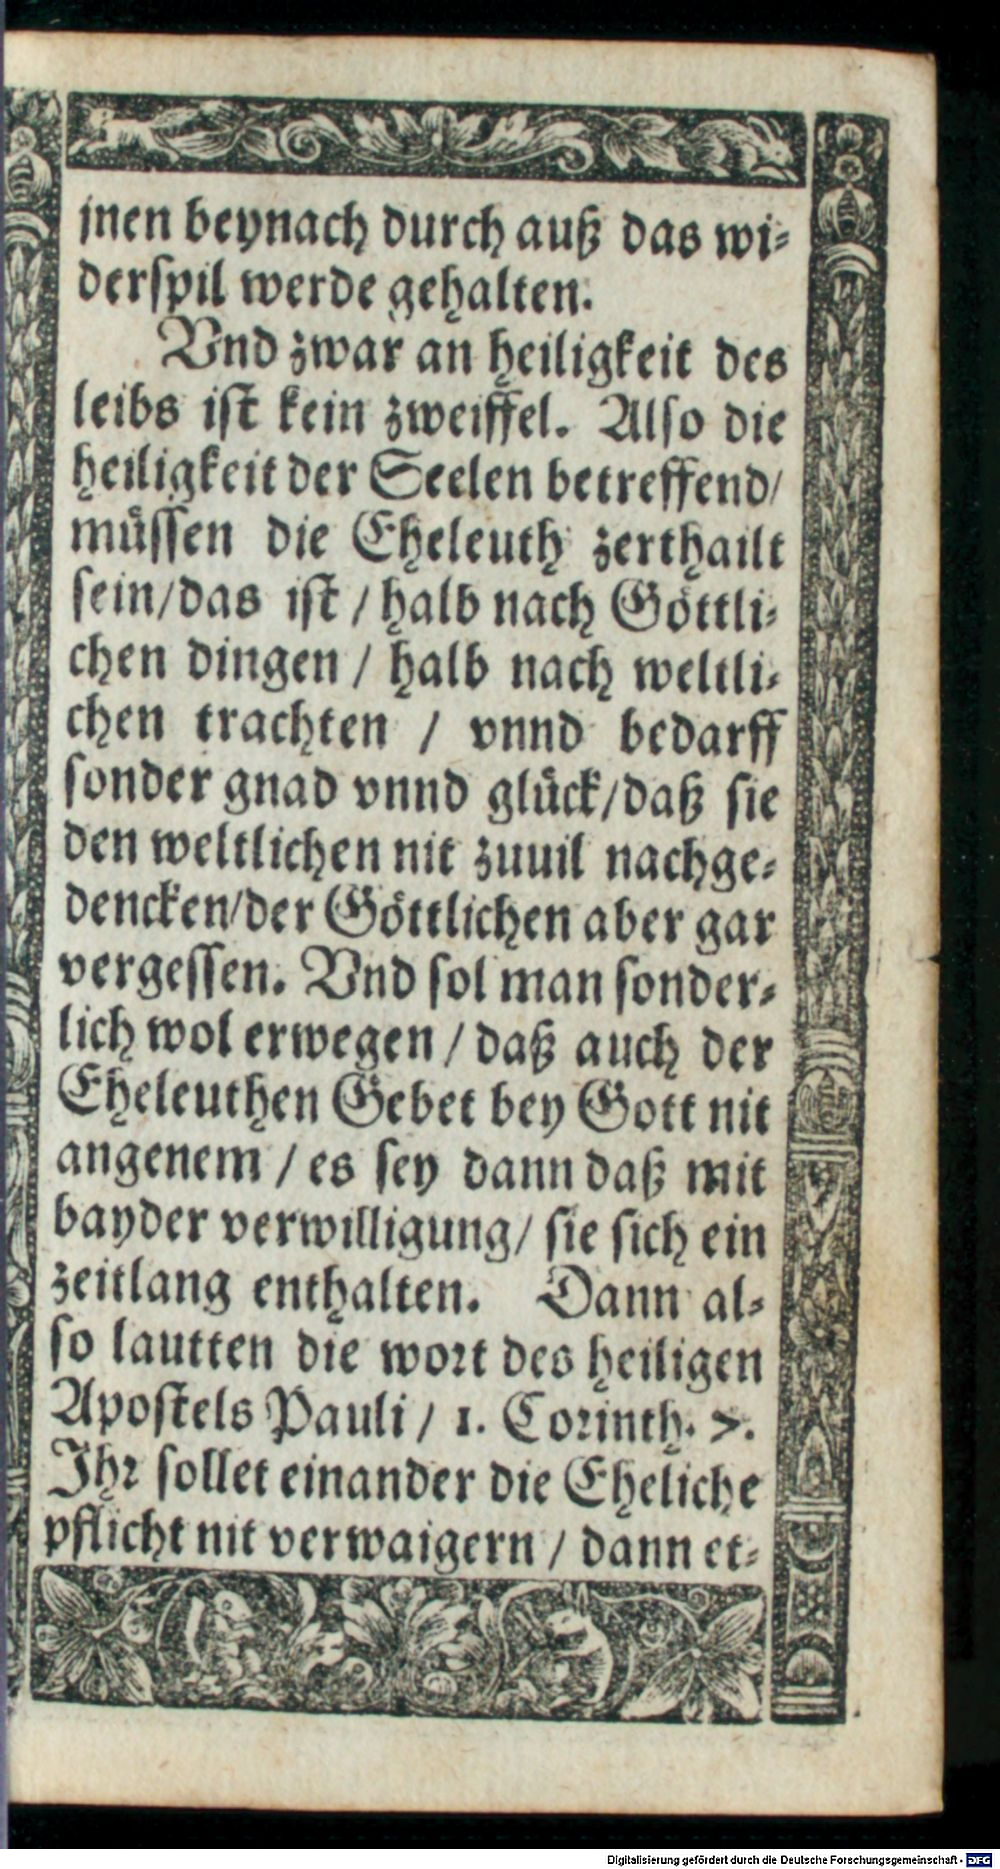 jnen beynach durch auß das wi-
derspil werde gehalten.
Vnd zwar an heiligkeit des
leibs ist kein zweiffel. Also die
heiligkeit der Seelen betreffend/
müssen die Eheleuth zerthailt
sein/das ist / halb nach Göttli-
chen dingen / halb nach weltli-
chen trachten / vnnd bedarff
sonder gnad vnnd glück/daß sie
den weltlichen nit zuuil nachge-
dencken/der Göttlichen aber gar
vergessen. Vnd sol man sonder-
lich wol erwegen / daß auch der
Eheleuthen Gebet bey Gott nit
angenem / es sey dann daß mit
bayder verwilligung/ sie sich ein
zeitlang enthalten. Dann al-
so lautten die wort des heiligen
Apostels Pauli / 1. Corinth. 7.
Ihr sollet einander die Eheliche
pflicht nit verwaigern / dann et-
Digitalisierung gefördert durch die Deutsche Forschungsgemeinschaft - DFG